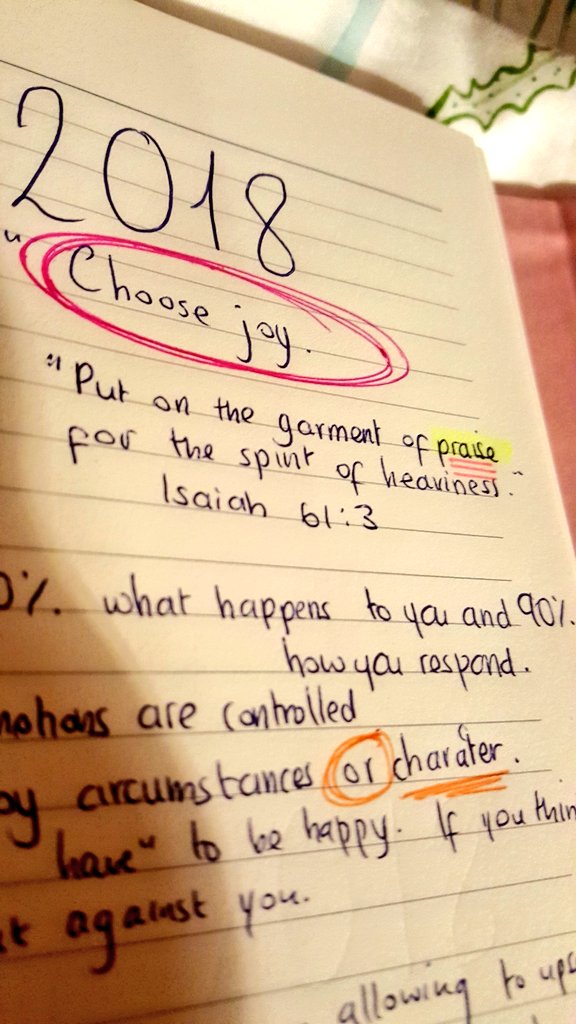 2018
"Choose joy.
"Put on the garment of praise
for the spirit of heaviness."
Isaiah 61:3
0%. what happens to you and 90%.
how you respond.
motions are controlled
by circumstances or charater.
have" to be happy. If you thin
t against you.
allowing to ups